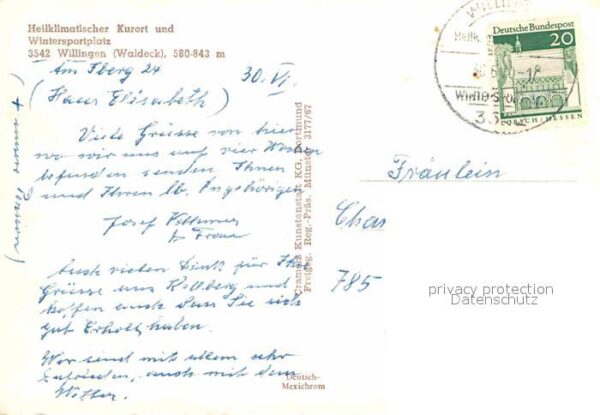 Heilklimatischer Kurort und
Wintersportplatz
3542 Willingen (Waldeck), 580-843 m
Am Iberg 24 30. VI.
(Haus Elisabeth)
+ unsere Pension)
Viele Grüsse von hier
wo wir uns auf vier Wochen
befinden senden Ihnen
und Ihren lb. Angehörigen
Josef
u. Frau
Auch vielen Dank für Ihre
Grüsse aus Kolberg und
hoffen auch dass Sie sich
gut Erholt haben.
Wir sind mit allem sehr
zufrieden, auch mit dem
Wetter.
Cramers Kunstanstalt KG, Dortmund
Freigeg. Reg.-Präs. Münster 3177/67
Deutsch-
Mexichrom
Deutsche Bundespost
20
LORSCH/HESSEN
Fräulein
785
privacy protection
Datenschutz